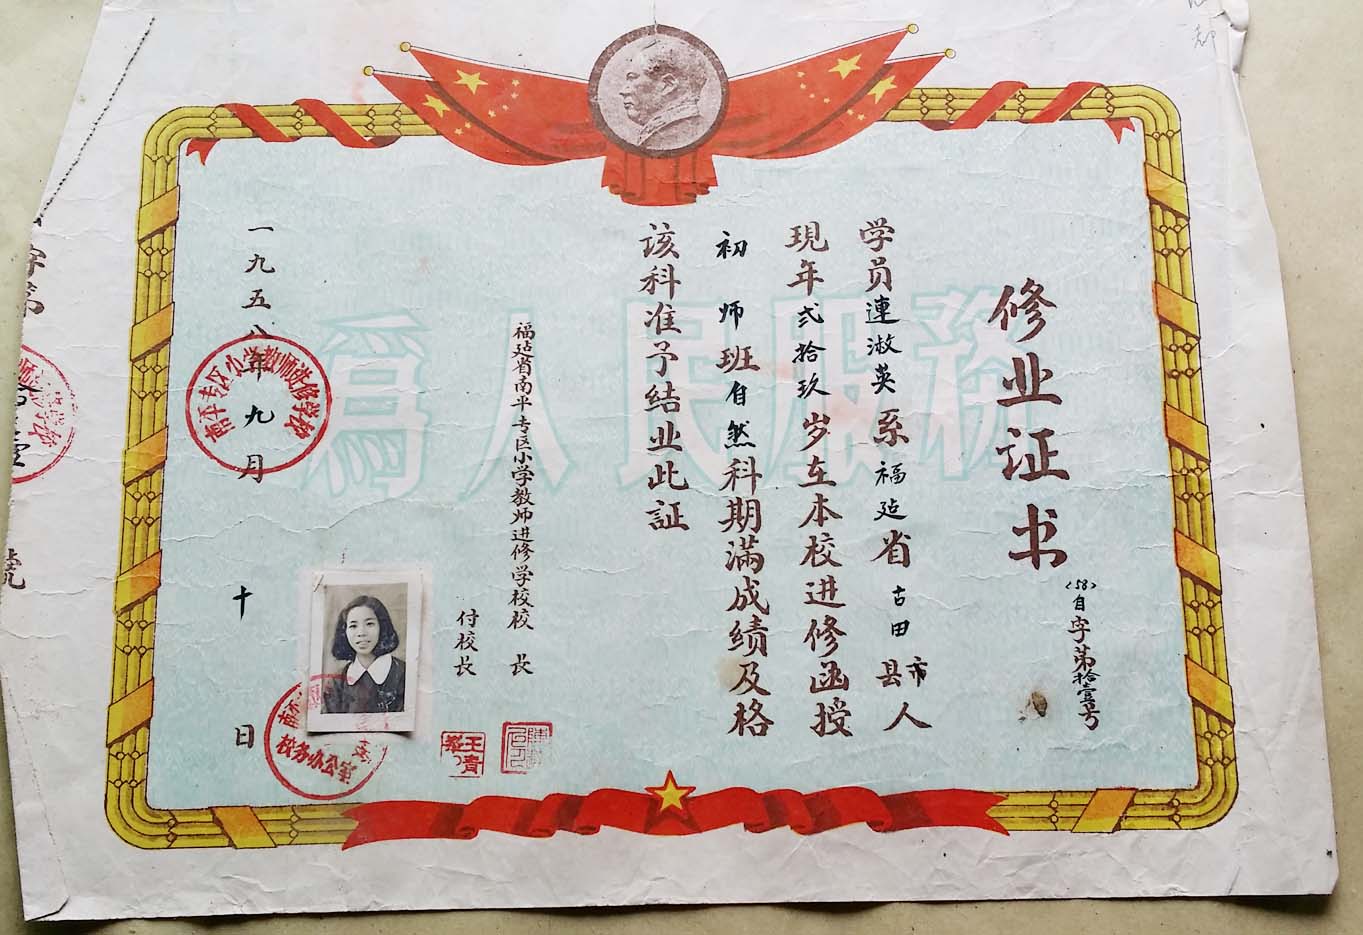 修业证书
(58)自字第拾壹号
学员連淑英系福建省古田县市人
現年弍拾玖岁在本校进修函授
初师班自然科期滿成绩及格
该科准予结业此証
福建省南平专区小学教师进修学校校长
付校长
一九五八年九月十日
爲人民服務
南平专区小学教师进修学校
校务办公室
字第
號